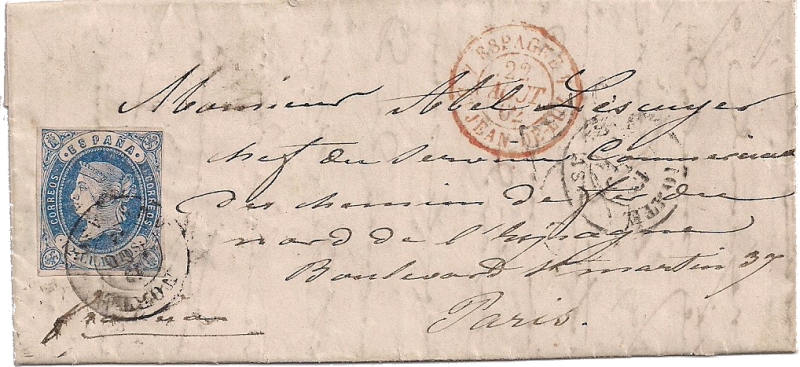 ESPAGNE
22
AOUT
62
ST JEAN-DE-LUZ
Monsieur Abel
ESPAÑA
CORREOS CORREOS
chef du Service Commercial
des chemins de fer du
nord de l'Espagne
Boulevard St martin 37
Paris.
NORTE
NORTE